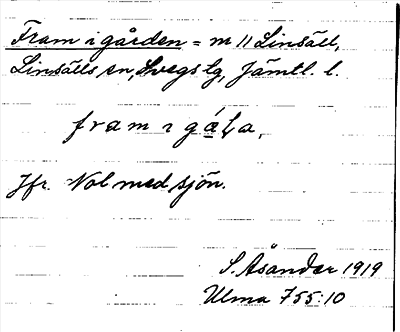 Fram i gården = m 11 Linsäll,
Linsälls sn, Svegs tg, Jämtl. l.
fram i gåla,
Jfr. Nol med sjön.
S. Åsander 1919
Ulma 755:10